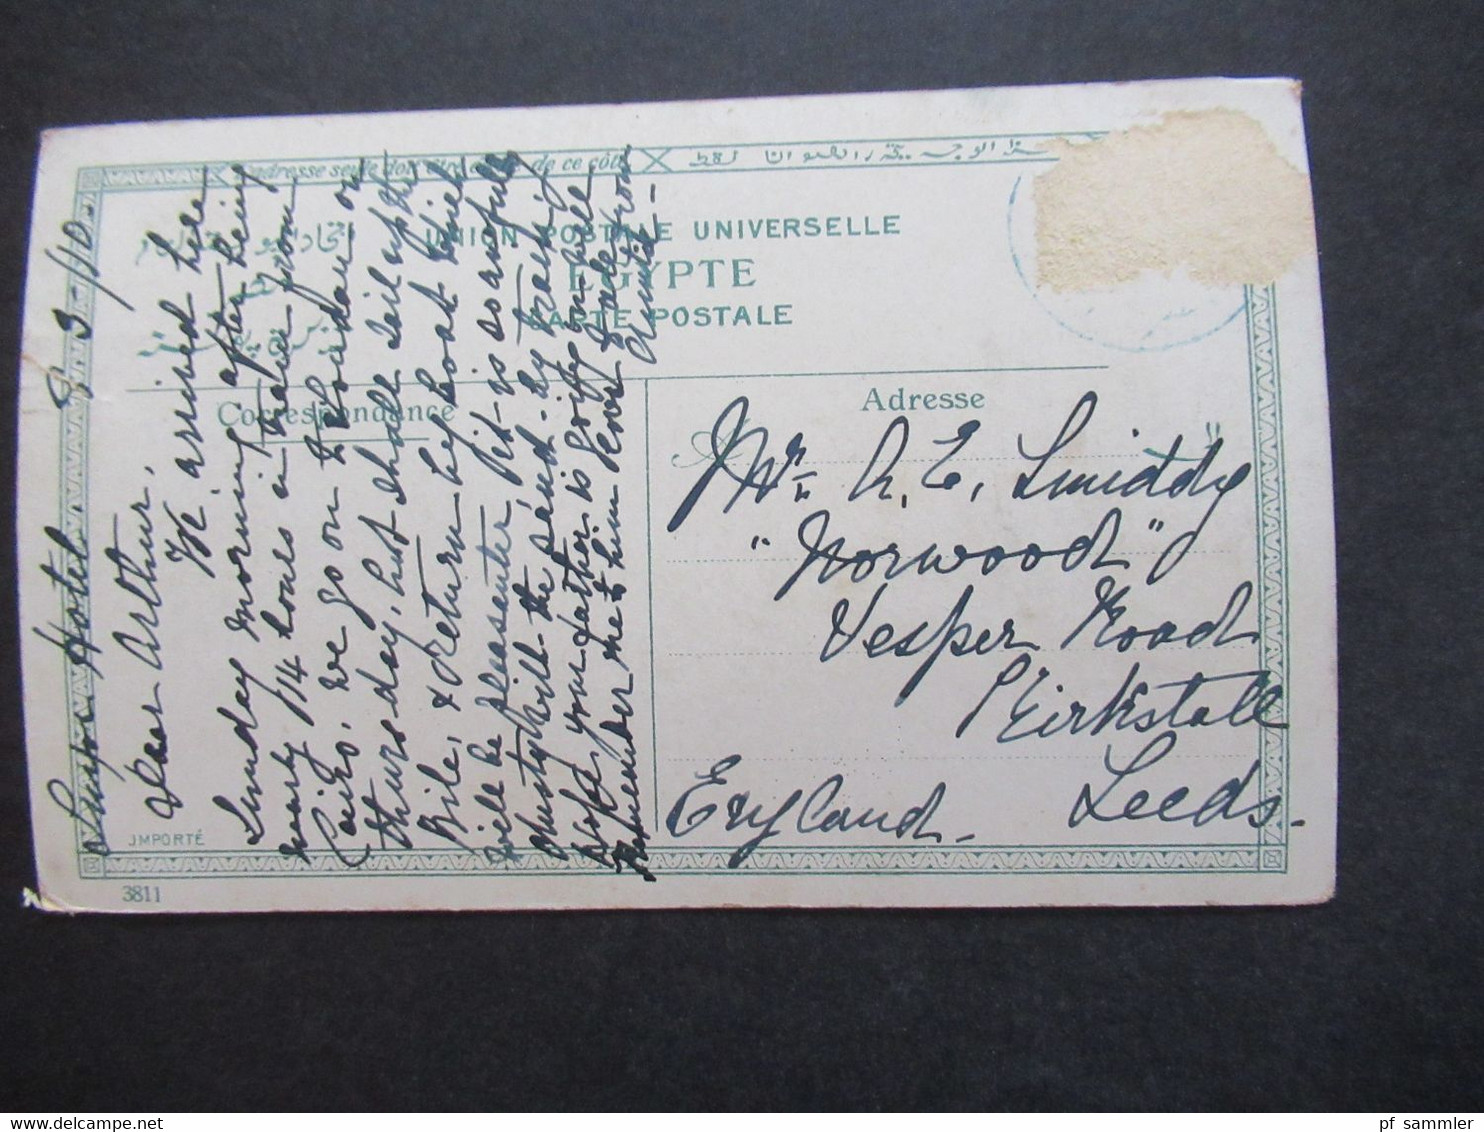 L'adresse seule doit être de ce côté
UNION POSTALE UNIVERSELLE
EGYPTE
CARTE POSTALE
Correspondance
Adresse
Hotel 8/3/10.
Dear Arthur,
We arrived here
Sunday morning after being
nearly 14 hours in train from
Cairo. We go on to on
thursday, but shall sail up the
Nile, & return by boat which
will be pleasanter, it is so awfully
dusty with the sand - by train;
hope your father is going on well
Remember me to him love from
Auntie -
Mr. A. E. Smiddy
"Norwood"
Vesper Road
Kirkstall
Leeds.
England.
JMPORTÉ
3811
pf sammler